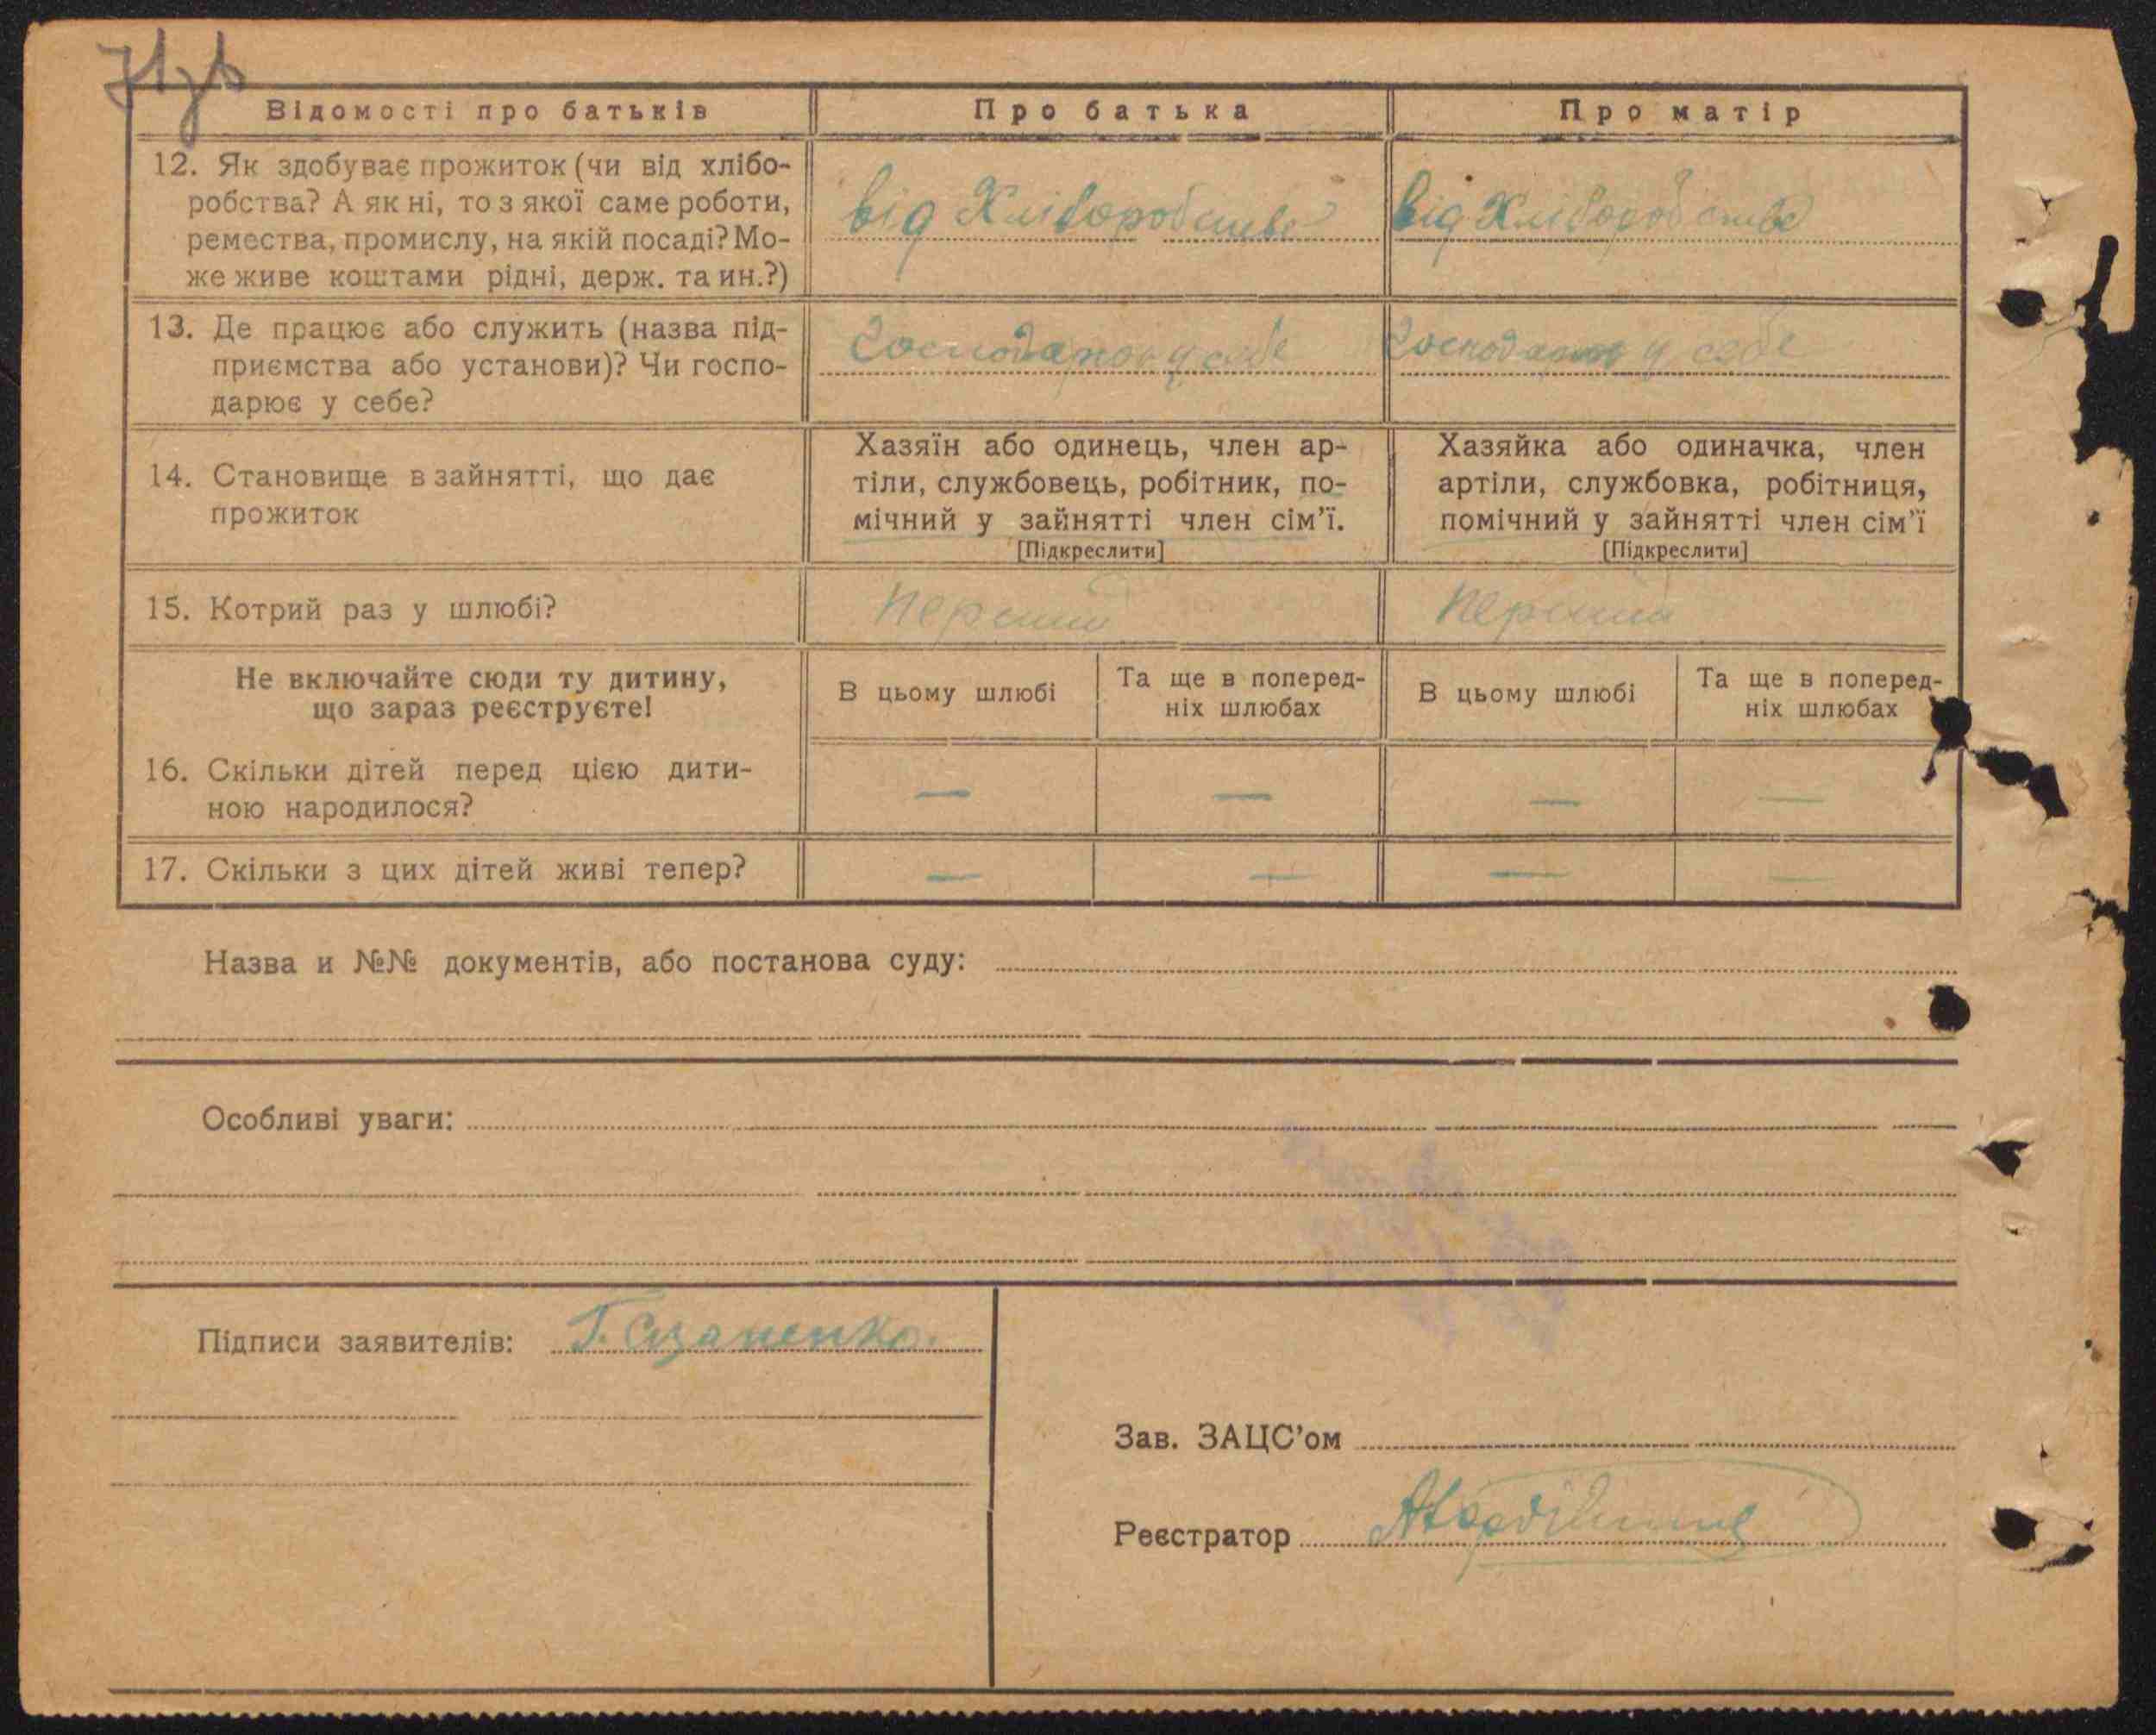 Відомості про батьків
Про батька
Про матір
12. Як здобуває прожиток (чи від хлібо-
робства? А як ні, то з якої саме роботи,
ремества, промислу, на якій посаді? Мо-
же живе коштами рідні, держ. та ин.?)
від Хліборобства
від Хліборобства
13. Де працює або служить (назва під-
приємства або установи)? Чи госпо-
дарює у себе?
у себе
у себе
14. Становище в зайнятті, що дає
прожиток
Хазяїн або одинець, член ар-
тіли, службовець, робітник, по-
мічний у зайнятті член сім'ї.
[Підкреслити]
Хазяйка або одиначка, член
артіли, службовка, робітниця,
помічний у зайнятті член сім'ї
[Підкреслити]
15. Котрий раз у шлюбі?
Не включайте сюди ту дитину,
що зараз реєструєте!
В цьому шлюбі
Та ще в поперед-
ніх шлюбах
В цьому шлюбі
Та ще в поперед-
ніх шлюбах
16. Скільки дітей перед цією дити-
ною народилося?
— — — —
17. Скільки з цих дітей живі тепер?
— — — —
Назва и №№ документів, або постанова суду:
Особливі уваги:
Підписи заявителів:
Зав. ЗАЦС'ом
Реєстратор